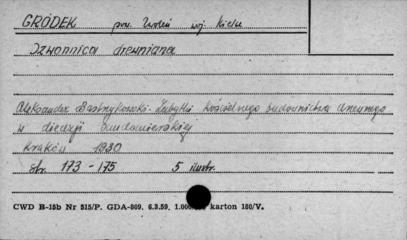 GRÓDEK pow. Zwoleń woj. Kielce
Dzwonnica drewniana
Aleksander Bastrzykowski. Zabytki kościelnego budownictwa drewnianego
w diecezji Sandomierskiej
Kraków 1930
str. 173 - 175 5 ilustr.
CWD B-15b Nr 515/P. GDA-809. 6.3.59. 1.000 karton 180/V.